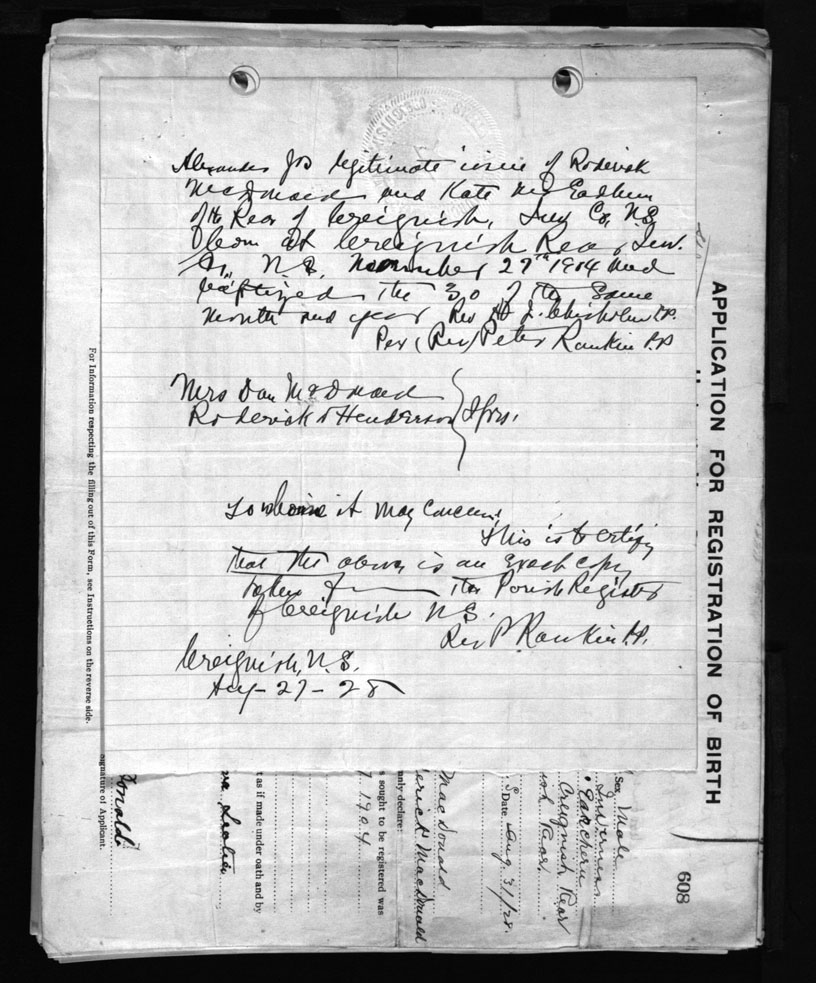 Alexander Jos legitimate issue of Roderick
McDonald and Kate McEachern
of the Rear of Creignish, Inv Co, N.S,
born at Creignish Rear, Inv.
Co., N.S. November 27th 1904 and
baptized the 30 of the same
month and year Rev A J. Chisholm P.P.
Per (Rev) Peter Rankin P.P
Mrs Dan McDonald
Roderick Henderson } Sprs.
To whome it May Concern;
This is to certify
that the above is an Exact copy
taken from the Parish Register
of Creignish N.S.
Rev P Rankin P.P.
Creignish, N.S.
Aug - 27 - 28
APPLICATION FOR REGISTRATION OF BIRTH
608
For Information respecting the filling out of this Form, see Instructions on the reverse side.
Sex Male
Inverness
Eachern
Creignish Rear
ish Rear
Date Aug. 31/28.
MacDonald
erick MacDonald
nly declare:
s sought to be registered was
1904
t as if made under oath and by
va Scotia
Donald
Signature of Applicant.